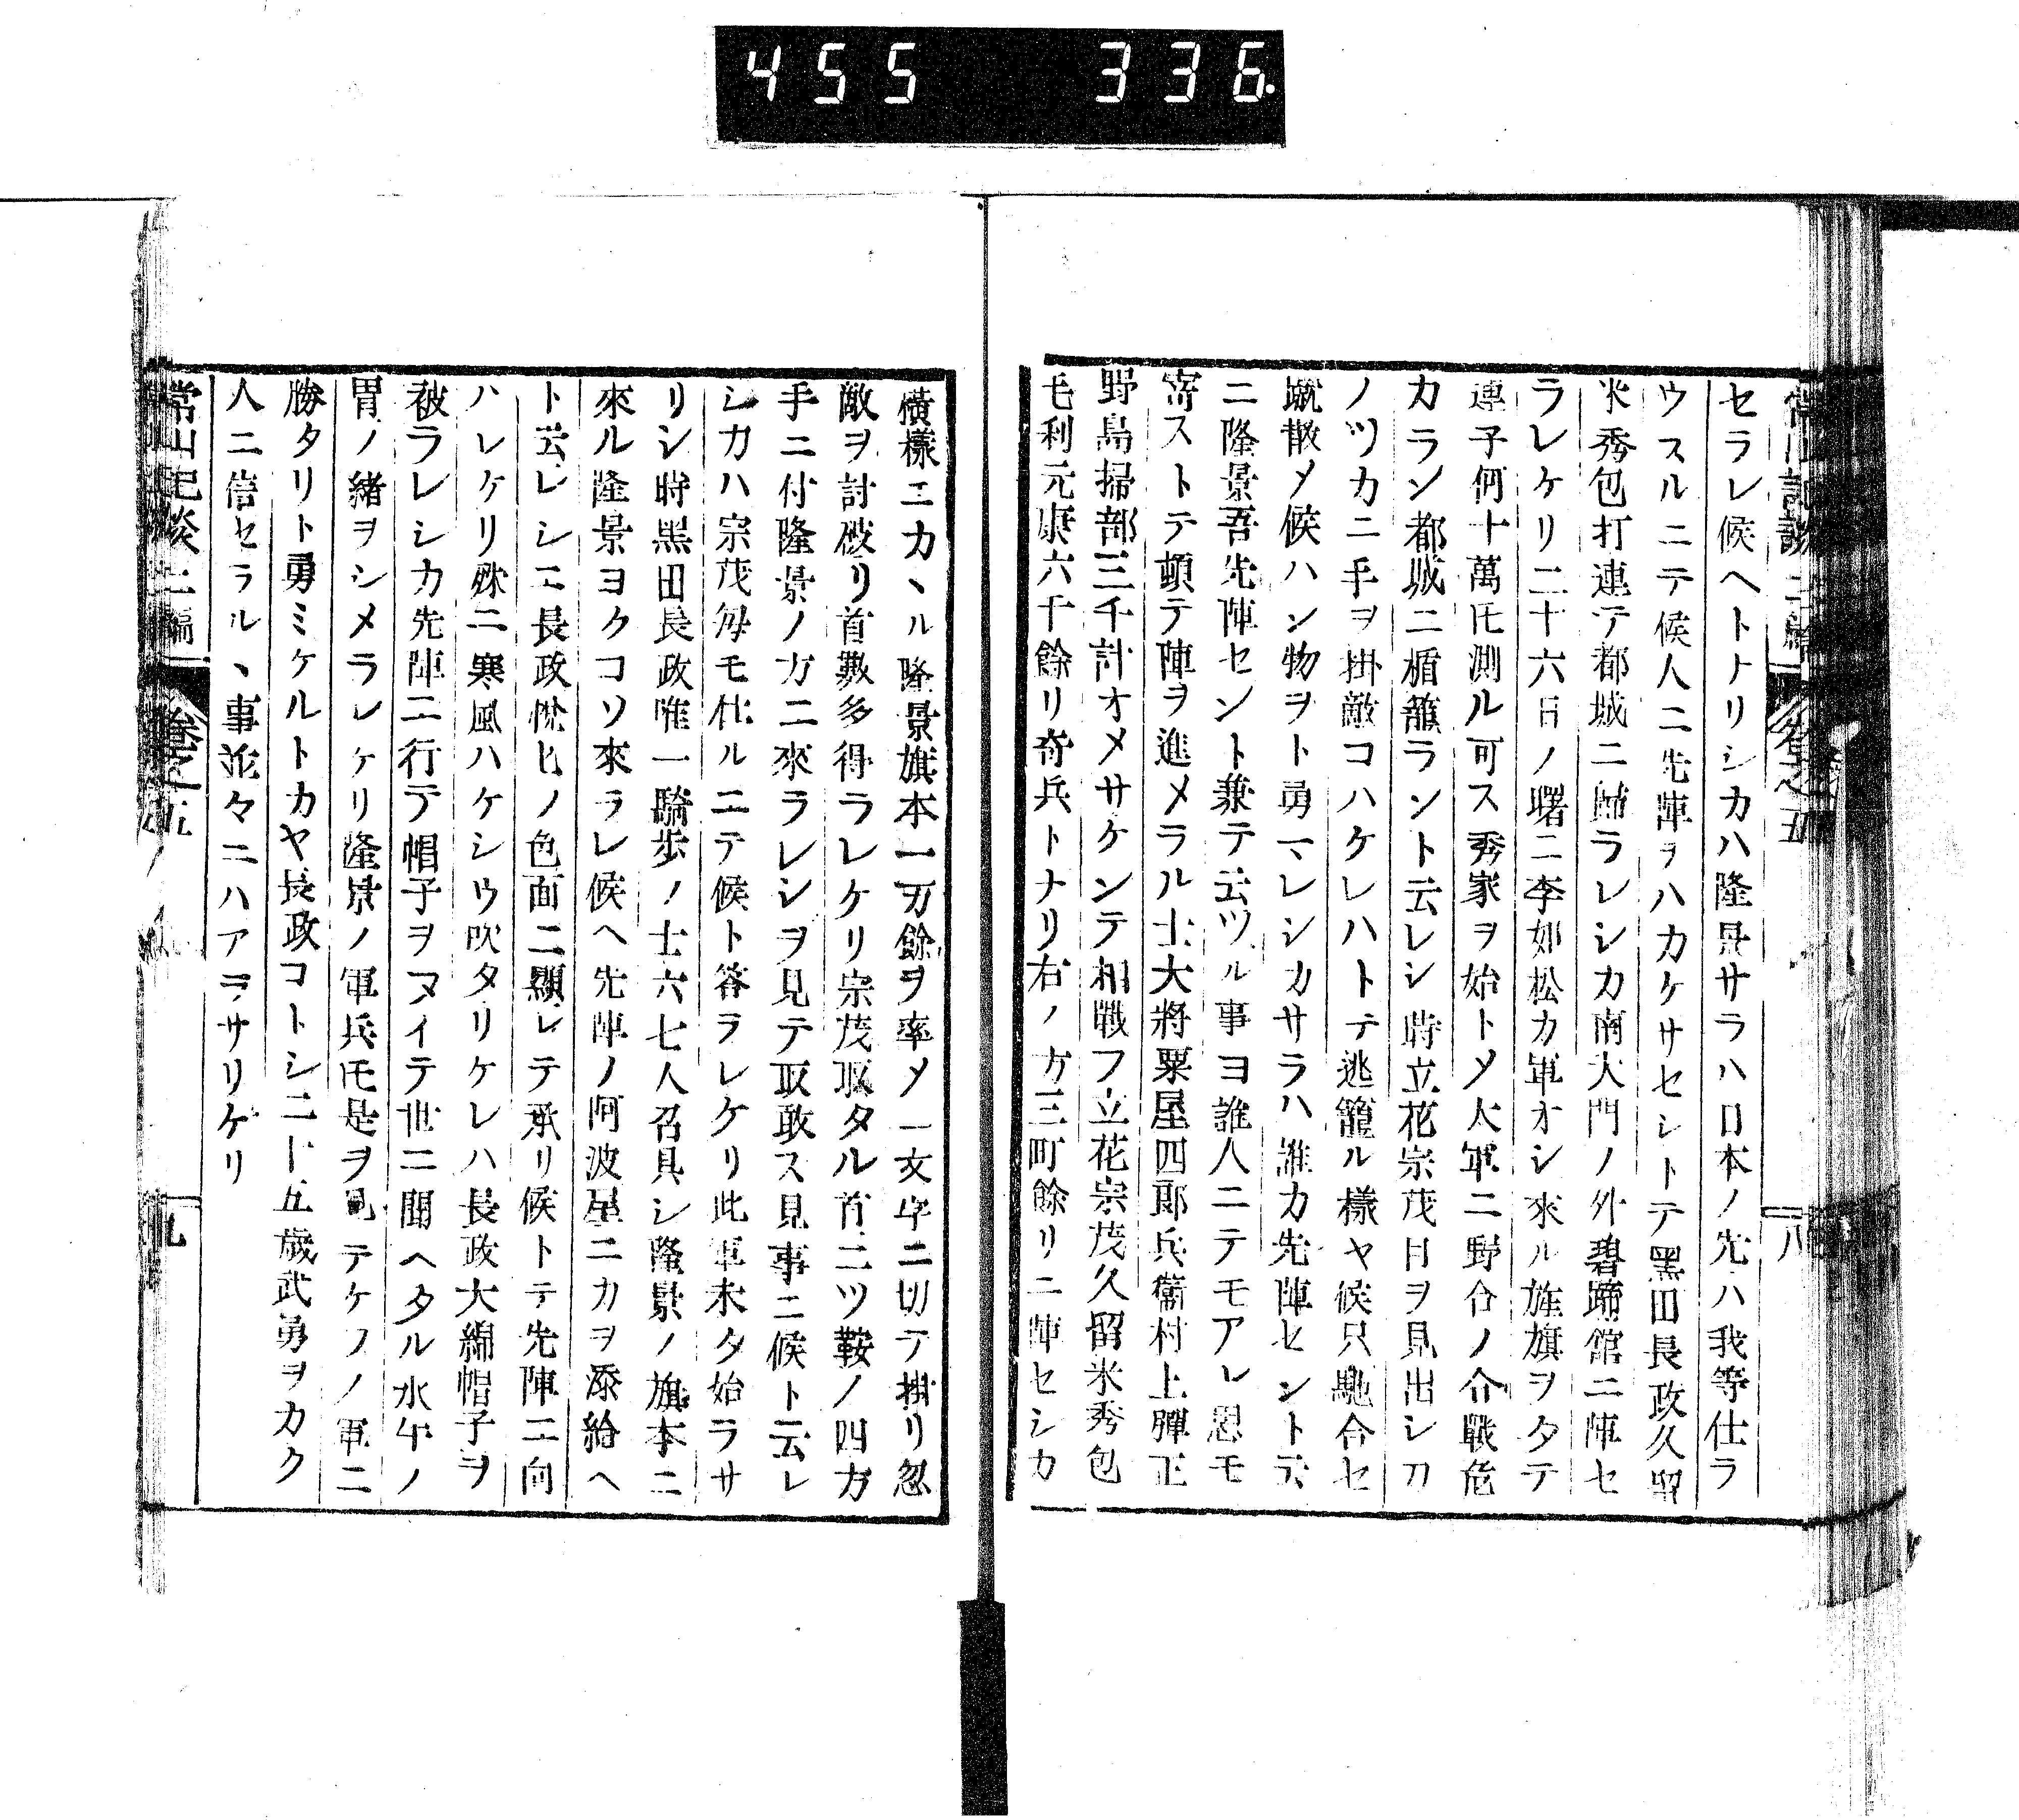 455 336
セラレ候ヘトナリシカハ隆景サラハ日本ノ先ハ我等仕ラ
ウスルニテ候人ニ先陣ヲハカケサセシトテ黑田長政久留
米秀包打連テ都城ニ歸ラレシカ南大門ノ外碧蹄館ニ陣セ
ラレケリ二十六日ノ曙ニ李如松カ軍オシ來ル旌旗ヲタテ
連子何十萬𪜈測ル可ス秀家ヲ始トメ大軍ニ野合ノ合戰危
カラン都城ニ楯籠ラント云レシ時立花宗茂目ヲ見出シ刀
ノツカニ手ヲ掛敵コハケレハトテ逃籠ル樣ヤ候只馳合セ
蹴散メ候ハン物ヲト勇マレシカサラハ誰カ先陣セントテ云
ニ隆景吾先陣セント兼テ云ツル事ヨ誰人ニテモアレ思モ
寄ストテ頓テ陣ヲ進メラル士大將粟屋四郎兵衞村上彈正
野島掃部三千計オメサケンテ相戰フ立花宗茂久留米秀包
毛利元康六千餘リ奇兵トナリ右ノ方三町餘リニ陣セシカ
常山記談 二編 卷之五 八
橫樣ニカヽル隆景旗本一万餘ヲ率メ一文字ニ切テ掛リ忽
敵ヲ討破リ首數多得ラレケリ宗茂取タル首二ツ鞍ノ四方
手ニ付隆景ノ方ニ來ラレシヲ見テ取敢ス見事ニ候ト云レ
シカハ宗茂每モ仕ルニテ候ト答ラレケリ此軍未タ始ラサ
リシ時黑田長政唯一騎步ノ士六七人召具シ隆景ノ旗本ニ
來ル隆景ヨクコソ來ラレ候ヘ先陣ノ阿波屋ニカヲ添給ヘ
ト云レシニ長政忱ヒノ色面ニ顯レテ承リ候トテ先陣ニ向
ハレケリ殊ニ寒風ハケシウ吹タリケレハ長政大綿帽子ヲ
被ラレシカ先陣ニ行テ帽子ヲヌイテ世ニ聞ヘタル水牛ノ
胃ノ緖ヲシメラレケリ隆景ノ軍兵𪜈是ヲ見テケフノ軍ニ
勝タリト勇ミケルトカヤ長政コトシ二十五歲武勇ヲカク
人ニ信セラルヽ事並々ニハアラサリケリ
常山記談 二編 卷之五 九